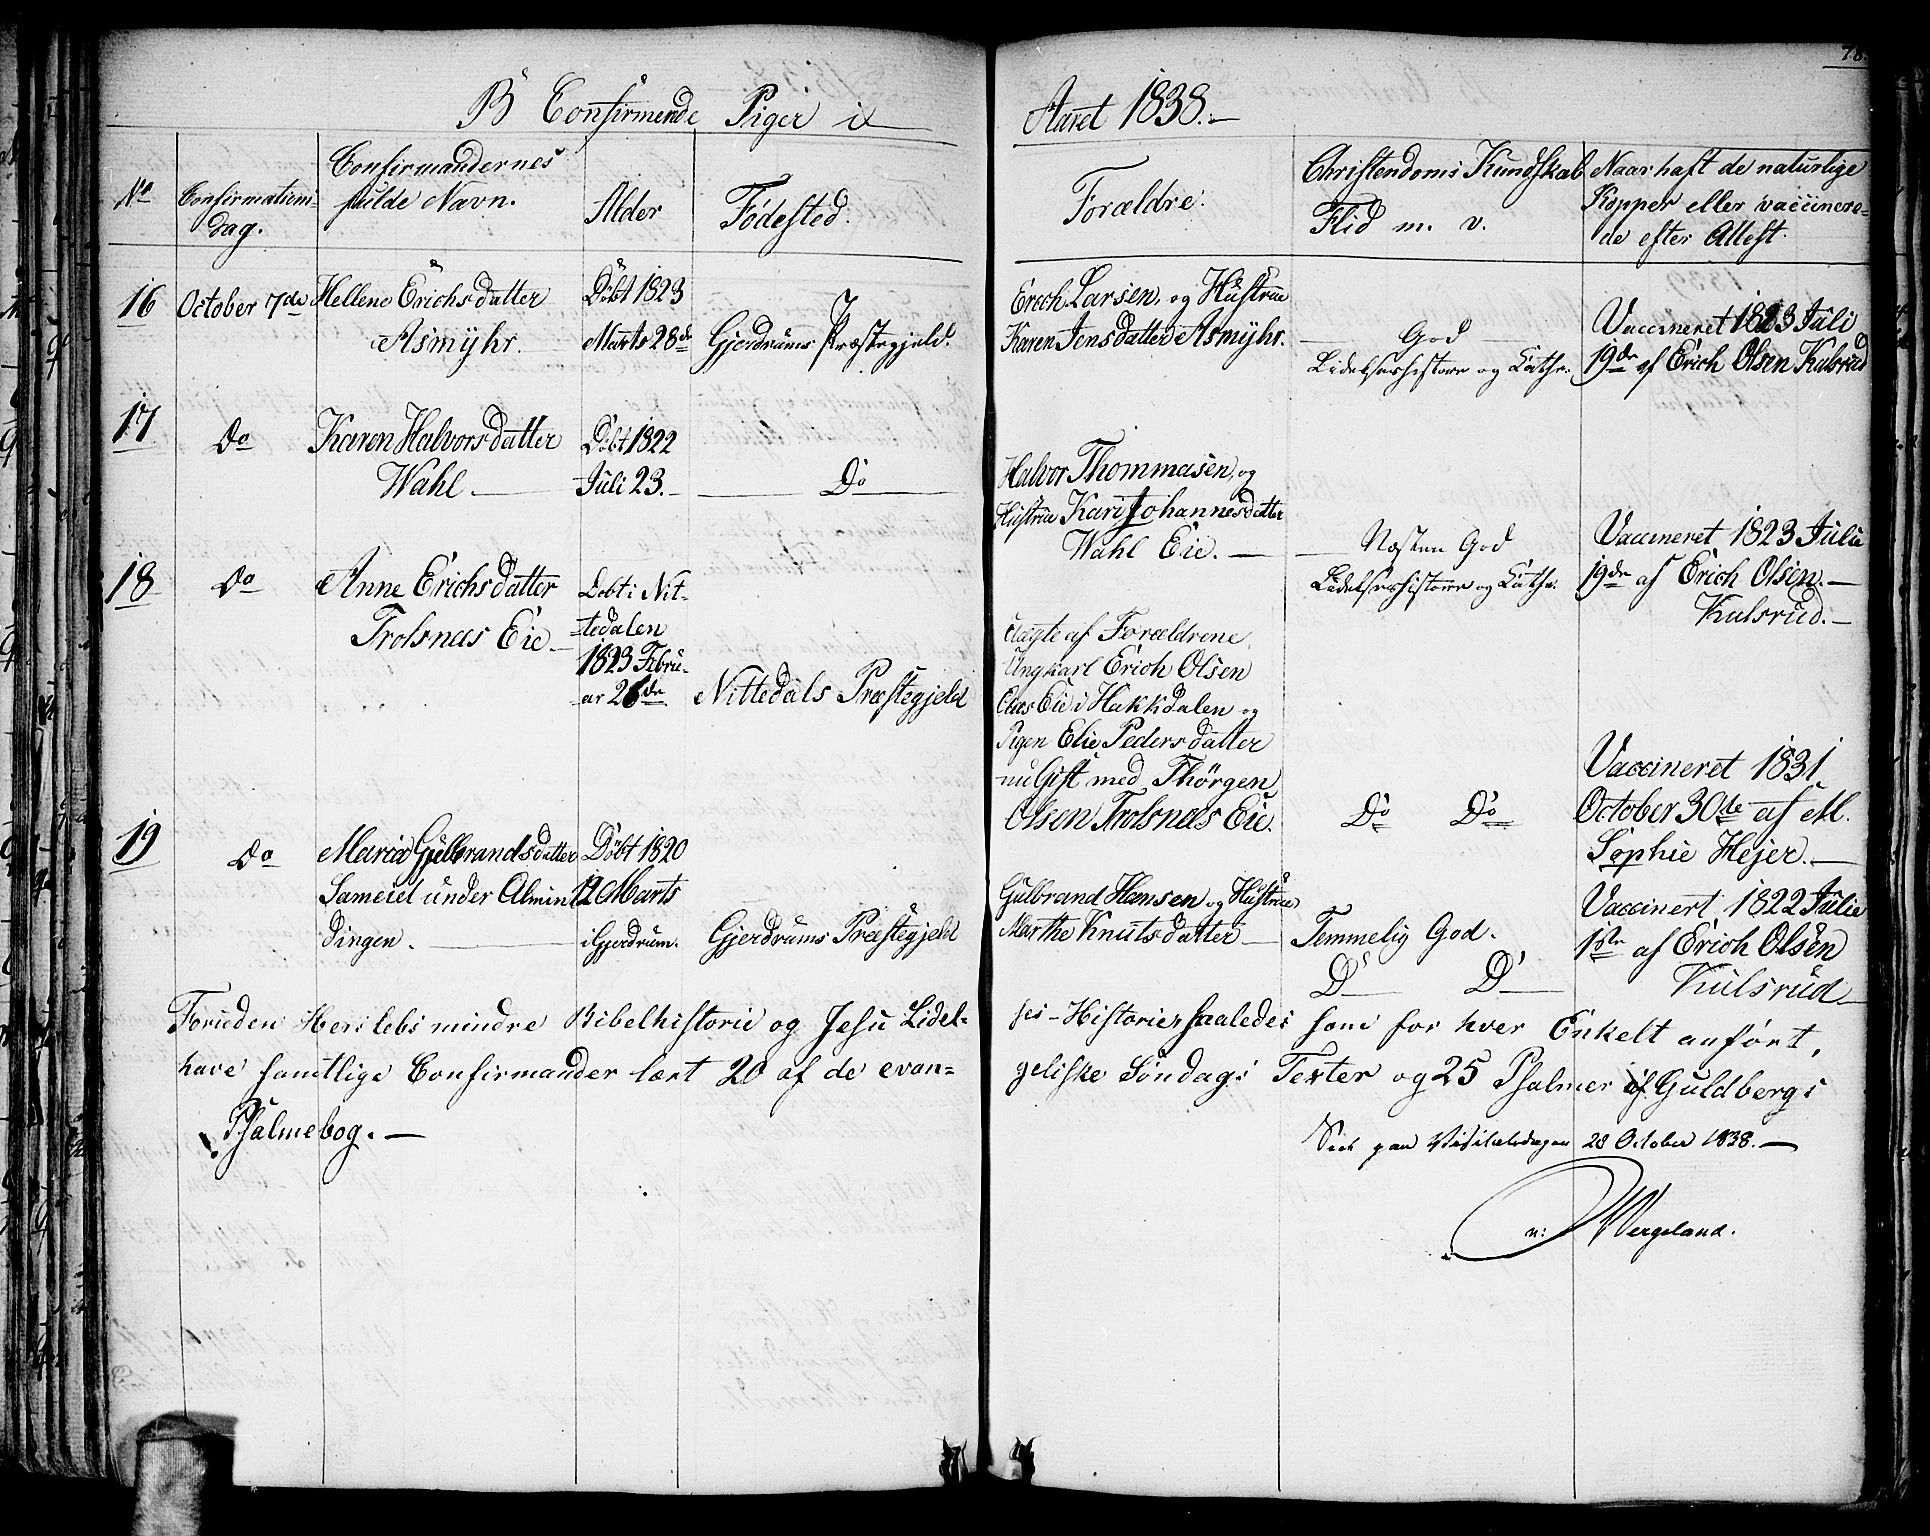 78.
B Confirmende Piger i Aaret 1838.
No
Confirmations-
dag.
Confirmandernes
fulde Navn.
Alder
Födested.
Forældre.
Christendoms Kundskab
Flid m. v.
Naar haft de naturlige
Kopper eller vaccinere-
de efter Attest.
16
October 7de
Hellene Erichsdatter
Asmyhr.
Döbt 1823
Marts 28de
Gjerdrums Præstegjeld.
Erich Larsen, og Hustrue
Karen Jensdatter Asmyhr.
God
Lidelseshistorie og Cathe.
Vaccineret 1823 Juli
19de af Erich Olsen Kulsrud
17
Do
Karen Halvorsdatter
Wahl
Döbt 1822
Juli 23.
Do
Halvor Thommasen, og
Hustrue Kari Johannesdatter
Wahl Eie.
Næsten God
Lidelseshistorie og Cathe.
Vaccineret 1823 Julii
19de af Erich Olsen.
Kulsrud.
18
Do
Anne Erichsdatter
Trolsnas Eie
Döbt i Nit-
tedalen
1823 Febru-
ar 26de
Nittedals Præstegjeld
Uægte af Forældrene,
Ungkarl Erich Olsen
Eie i Hakkdalen og
Pigen Elie Pedersdatter
nu Gift med Thörgen
Olsen Trolsnas Eie.
Do Do
Vaccineret 1831
October 30te af M.
Sophie Hejer.
19
Do
Maria Gulbrandsdatter
Sameiet under Almin-
dingen.
Döbt 1820
12 Marts
i Gjerdrum.
Gjerdrums Præstegjeld
Gulbrand Hansen og Hustrue
Marthe Knutsdatter
Temmelig God.
Do Do
Vaccinert 1822 Julie
1ste af Erich Olsen
Kulsrud
Foruden Herslebs mindre Bibelhistorie og Jesu Lidel-
ses-Historie saaledes som for hver Enkelt anfört,
have samtlige Confirmander lært 20 af de evan-
geliske Söndags Texter og 25 Psalmer af Guldbergs
Psalmebog.
Seet paa Visitatsdagen 28 October 1838.
n: Wergeland.